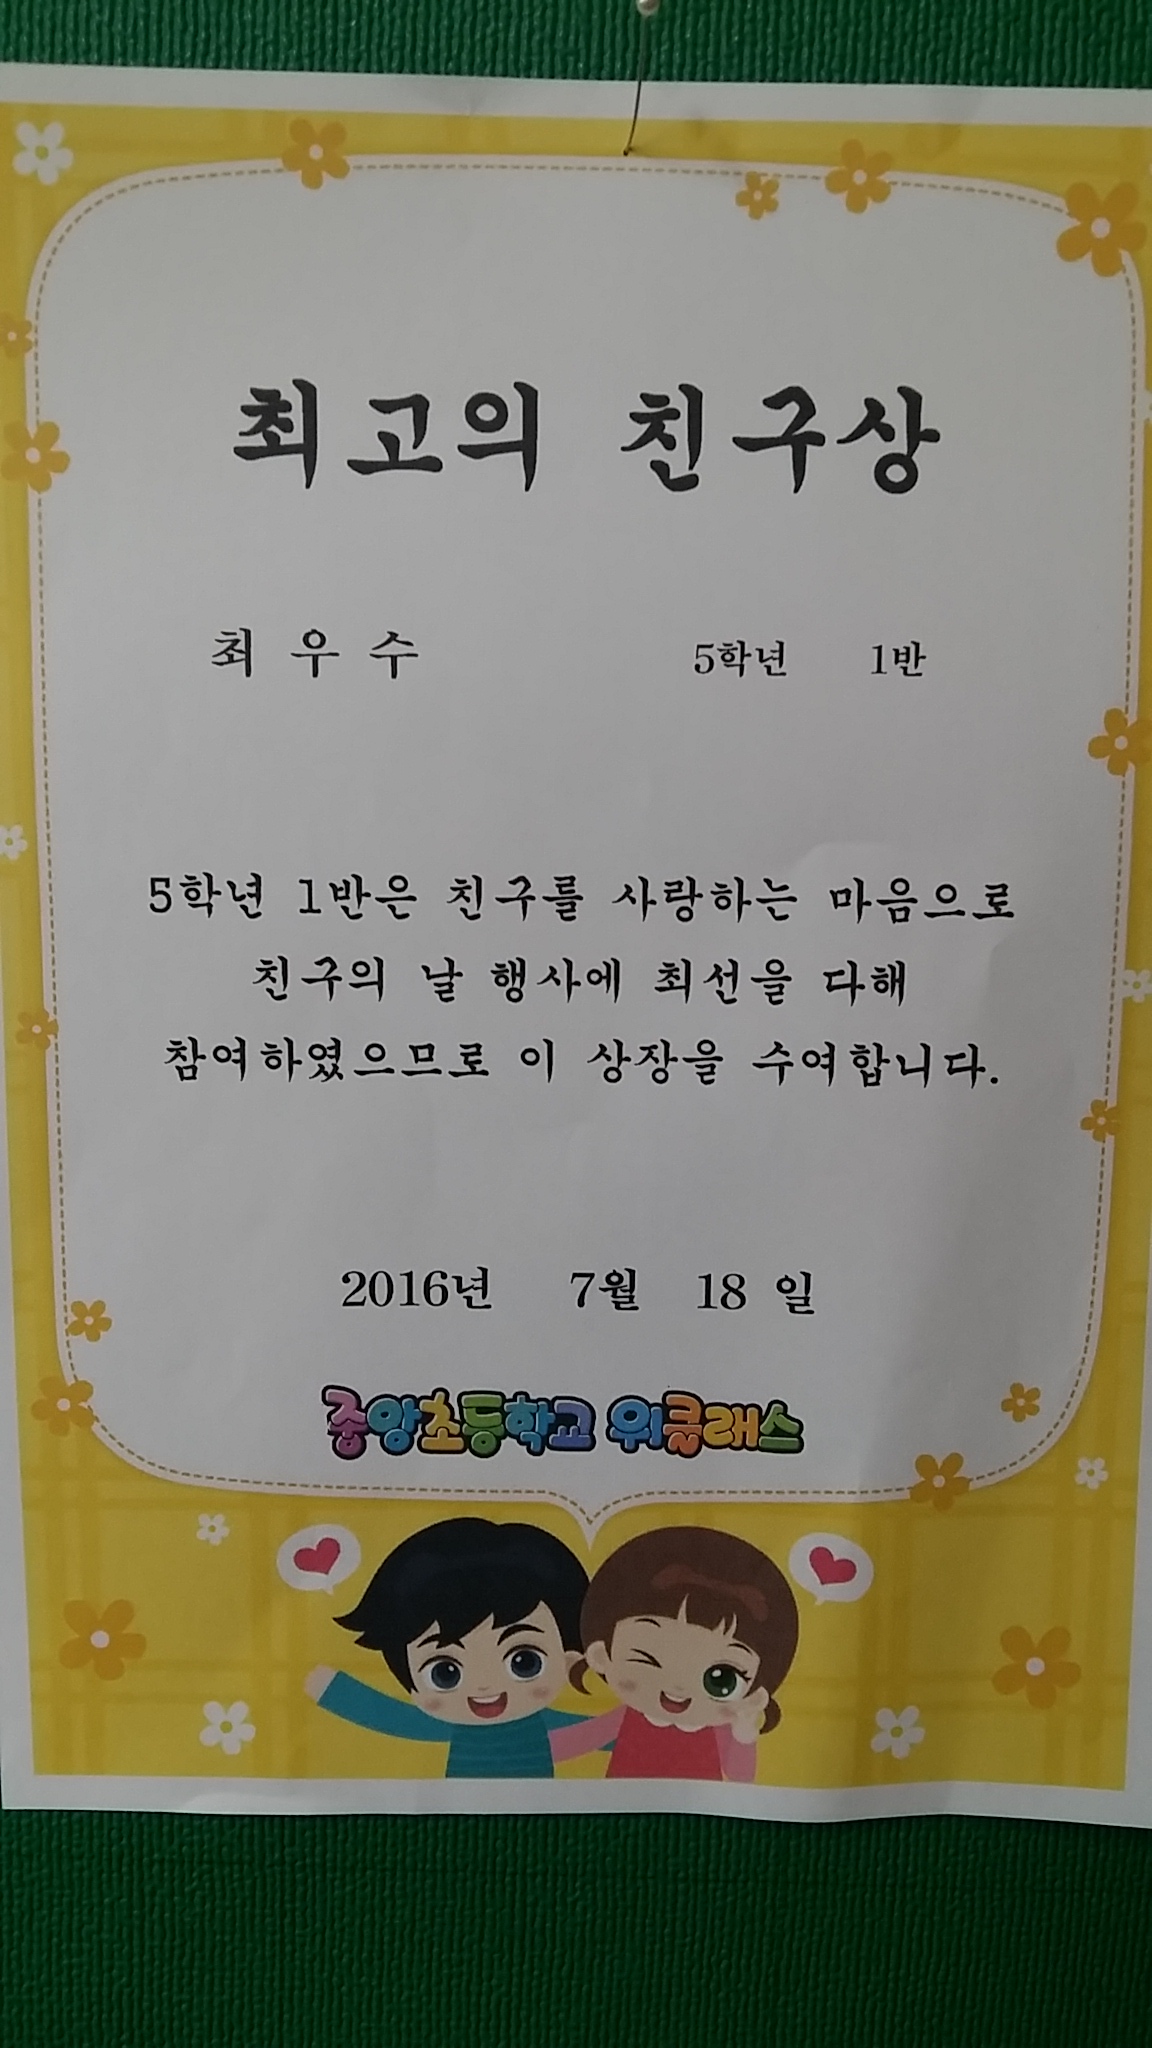 최고의 친구상
최 우 수 5학년 1반
5학년 1반은 친구를 사랑하는 마음으로
친구의 날 행사에 최선을 다해
참여하였으므로 이 상장을 수여합니다.
2016년 7월 18 일
중앙초등학교 위클래스